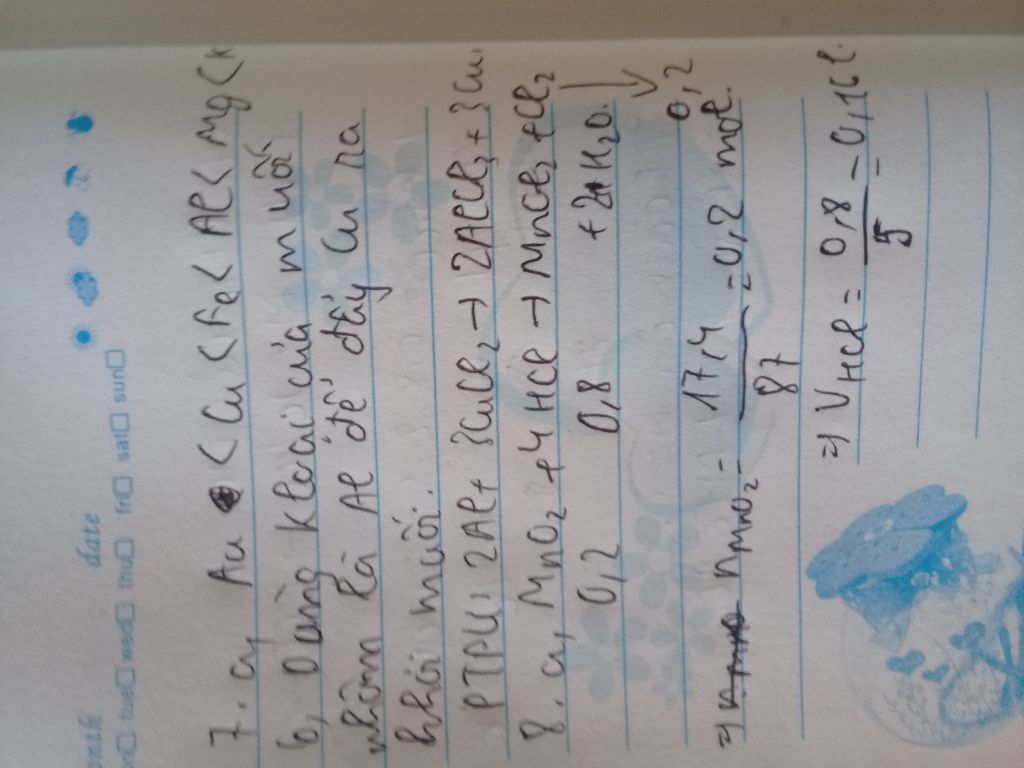 date
tue wed thu fri sat sun
7. a, Au < Cu < Fe < Al < Mg < K
b, Dùng kloại của muối
nhôm là Al để đẩy Cu ra
khỏi muối.
PTPU: 2Al + 3CuCl2 → 2AlCl3 + 3Cu.
8. a, MnO2 + 4HCl → MnCl2 + Cl2
0,2 0,8 + 2H2O. ↓
0,2
=) nMnO2 = 17,4/87 = 0,2 mol.
=) VHCl = 0,8/5 = 0,16 l.